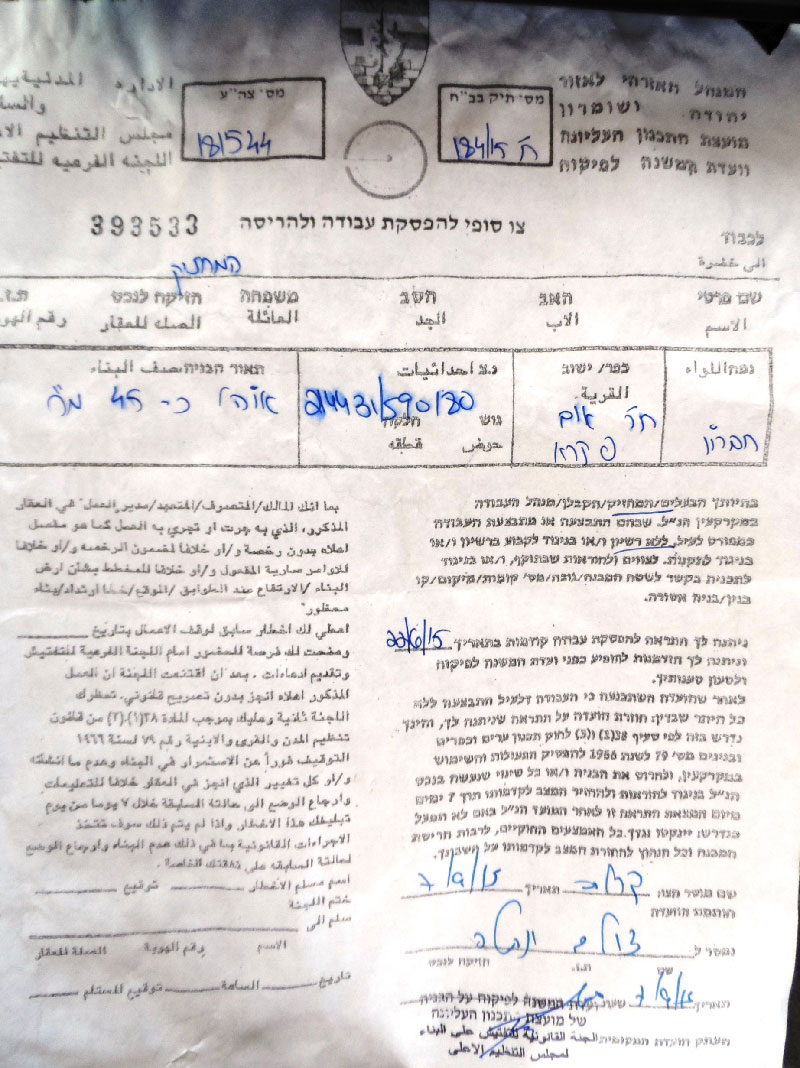 המנהל האזרחי לאזור
יהודה ושומרון
מועצת התכנון העליונה
וועדת המשנה לפיקוח
מס' תיק בב"ח
ח 184/15
מס' צה"ע
181544
الادارة المدنية
مجلس التنظيم
اللجنة الفرعية
צו סופי להפסקת עבודה ולהריסה
393533
לכבוד
الى حضرة
המחזיק
שם פרטי האב הסב משפחה זיקה לנכס ת.ז.
الاسم الاب الجد العائلة الصلة للعقار رقم
נפה/اللواء
חברון
כפר/ ישוב
القرية
נ.צ احداثيات
גוש חלקה
حوض قطعه
תאור הבניה/صنف البناء
אוהל כ- 45 מ"ר
בהיותך הבעלים/המחזיק/הקבלן/מנהל העבודה
במקרקעין הנ"ל, שבהם התבצעה או מתבצעת העבודה
כמפורט לעיל, ללא רשיון ו/או בניגוד לקבוע ברשיון ו/או
בניגוד לתקנות, לצווים ולהוראות שבתוקף, ו/או בניגוד
לתכנית בקשר לשטח המבנה/גובה/מס' קומות/מיקום/קו
בנין/בניה אסורה.
ניתנה לך התראה להפסקת עבודה קודמת בתאריך 22/6/15
וניתנה לך הזדמנות להופיע בפני ועדת המשנה לפיקוח
ולטעון טענותיך.
לאחר שהועדה השתכנעה כי העבודה דלעיל התבצעה ללא
כל היתר שבדין, חוזרת הועדה על התראה שניתנה לך, והינך
נדרש בזה לפי סעיף 38(1) (3) לחוק תכנון ערים וכפרים
ובניינים מס' 79 לשנת 1966 להפסיק הפעולות והשימוש
במקרקעין, ולהרוס את הבניה ו/או כל שינוי שנעשה בנכס
הנ"ל בניגוד להוראות ולהחזיר המצב לקדמותו תוך 7 ימים
מיום המצאת התראה זו לאחר המועד הנ"ל באם לא תפעל
כנדרש, ינקטו נגדך כל האמצעים החוקיים, לרבות הריסת
המבנה וכל הנחוץ להחזרת המצב לקדמותו על חשבונך.
שם מוסר הצו תאריך 7/9/15
חותמת הועדה
נמסר ל
שם ת.ז. זיקה לנכס
תאריך 7/9/15 שעה
ועדת המשנה לפיקוח על הבניה
של מועצת התכנון העליונה
لمجلس التنظيم الاعلى
بما انك المالك/المتصرف/المتعهد/مدير العمل في العقار
المذكور، الذي به جرت او تجري به العمل كما هو مفصل
اعلاه بدون رخصة و/او خلافا لمضمون الرخصه و/او خلافا
للاوامر سارية المفعول و/او خلافا للمخطط بشأن ارض
البناء /الارتفاع عدد الطوابق /الموقع/خط ارتداد/بناء
محظور
اعطي لك اخطار سابق لوقف الاعمال بتاريخ
ومنحت لك فرصة للحضور امام اللجنة الفرعية للتفتيش
وتقديم ادعاءات . بعد ان اقتنعت اللجنة ان العمل
المذكور اعلاه انجز بدون تصريح قانوني. تحظرك
اللجنة ثانية وعليك بموجب المادة ٣٨(١).(٣) من قانون
تنظيم المدن والقرى والابنية رقم ٧٩ لسنة ١٩٦٦
التوقيف فوراً عن الاستمرار في البناء وهدم ما انشأته
و/او كل تغيير الذي انجز في العقار خلافا للتعليمات
وارجاع الوضع الى حالتة السابقة خلال ٧ يوما من يوم
تبليغك هذا الاخطار واذا لم يتم ذلك سوف تتخذ
الاجراءات القانونية بما في ذلك هدم البناء وارجاع الوضع
لحالته السابقه على نفقتك الخاصة .
اسم مسلم الاخطار توقيع
ختم اللجنة
سلم الى
الاسم رقم الهوية الصلة للعقار
تاريخ الساعة توقيع المستلم